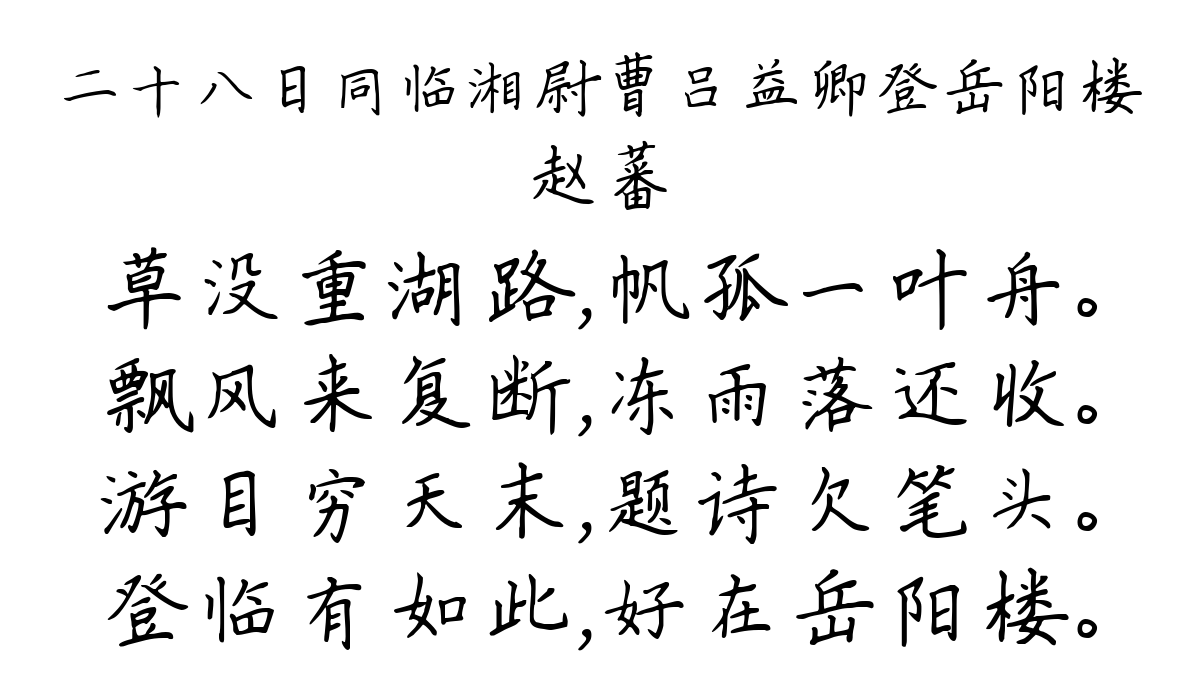 二十八日同临湘尉曹吕益卿登岳阳楼
赵蕃
草没重湖路,帆孤一叶舟。
飘风来复断,冻雨落还收。
游目穷天末,题诗欠笔头。
登临有如此,好在岳阳楼。